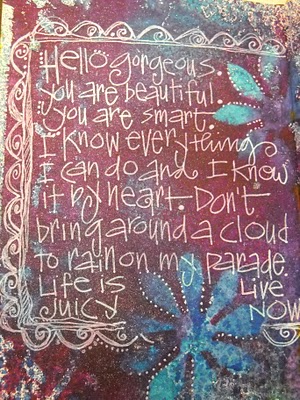 Hello gorgeous.
you are beautiful.
you are smart.
I know everything
I can do and I know
it by heart. Don't
bring around a cloud
to rain on my parade.
Life is Live
Juicy NOW